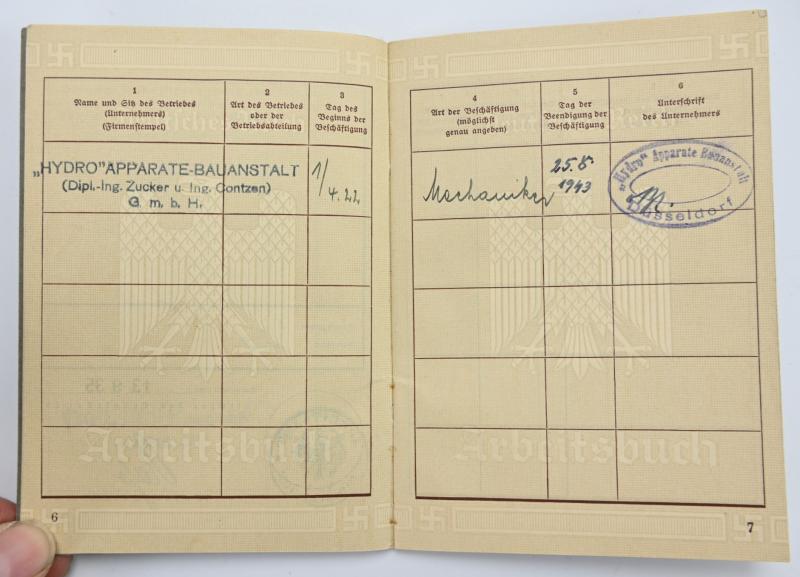 1
Name und Sitz des Betriebes
(Unternehmers)
(Firmenstempel)
2
Art des Betriebes
oder der
Betriebsabteilung
3
Tag des
Beginns der
Beschäftigung
„HYDRO" APPARATE-BAUANSTALT
(Dipl.-Ing. Zucker u. Ing. Contzen)
G. m. b. H.
1/
4.22
Arbeitsbuch
6
4
Art der Beschäftigung
(möglichst
genau angeben)
5
Tag der
Beendigung der
Beschäftigung
6
Unterschrift
des Unternehmers
Mechaniker
25.8.
1943
„Hydro" Apparate Bauanstalt
Düsseldorf
Arbeitsbuch
7